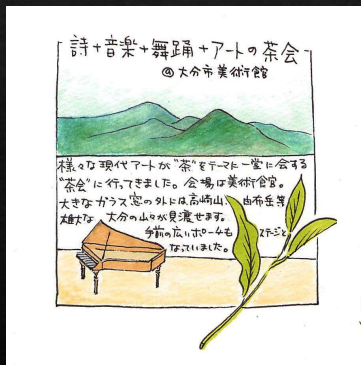 詩+音楽+舞踊+アートの茶会
@大分市美術館
様々な現代アートが"茶"をテーマに一堂に会する
"茶会"に行ってきました。会場は美術館。
大きなガラス窓の外には高崎山、由布岳等
雄大な 大分の山々が見渡せます。
手前の広いポーチも ステージと
なっていました。